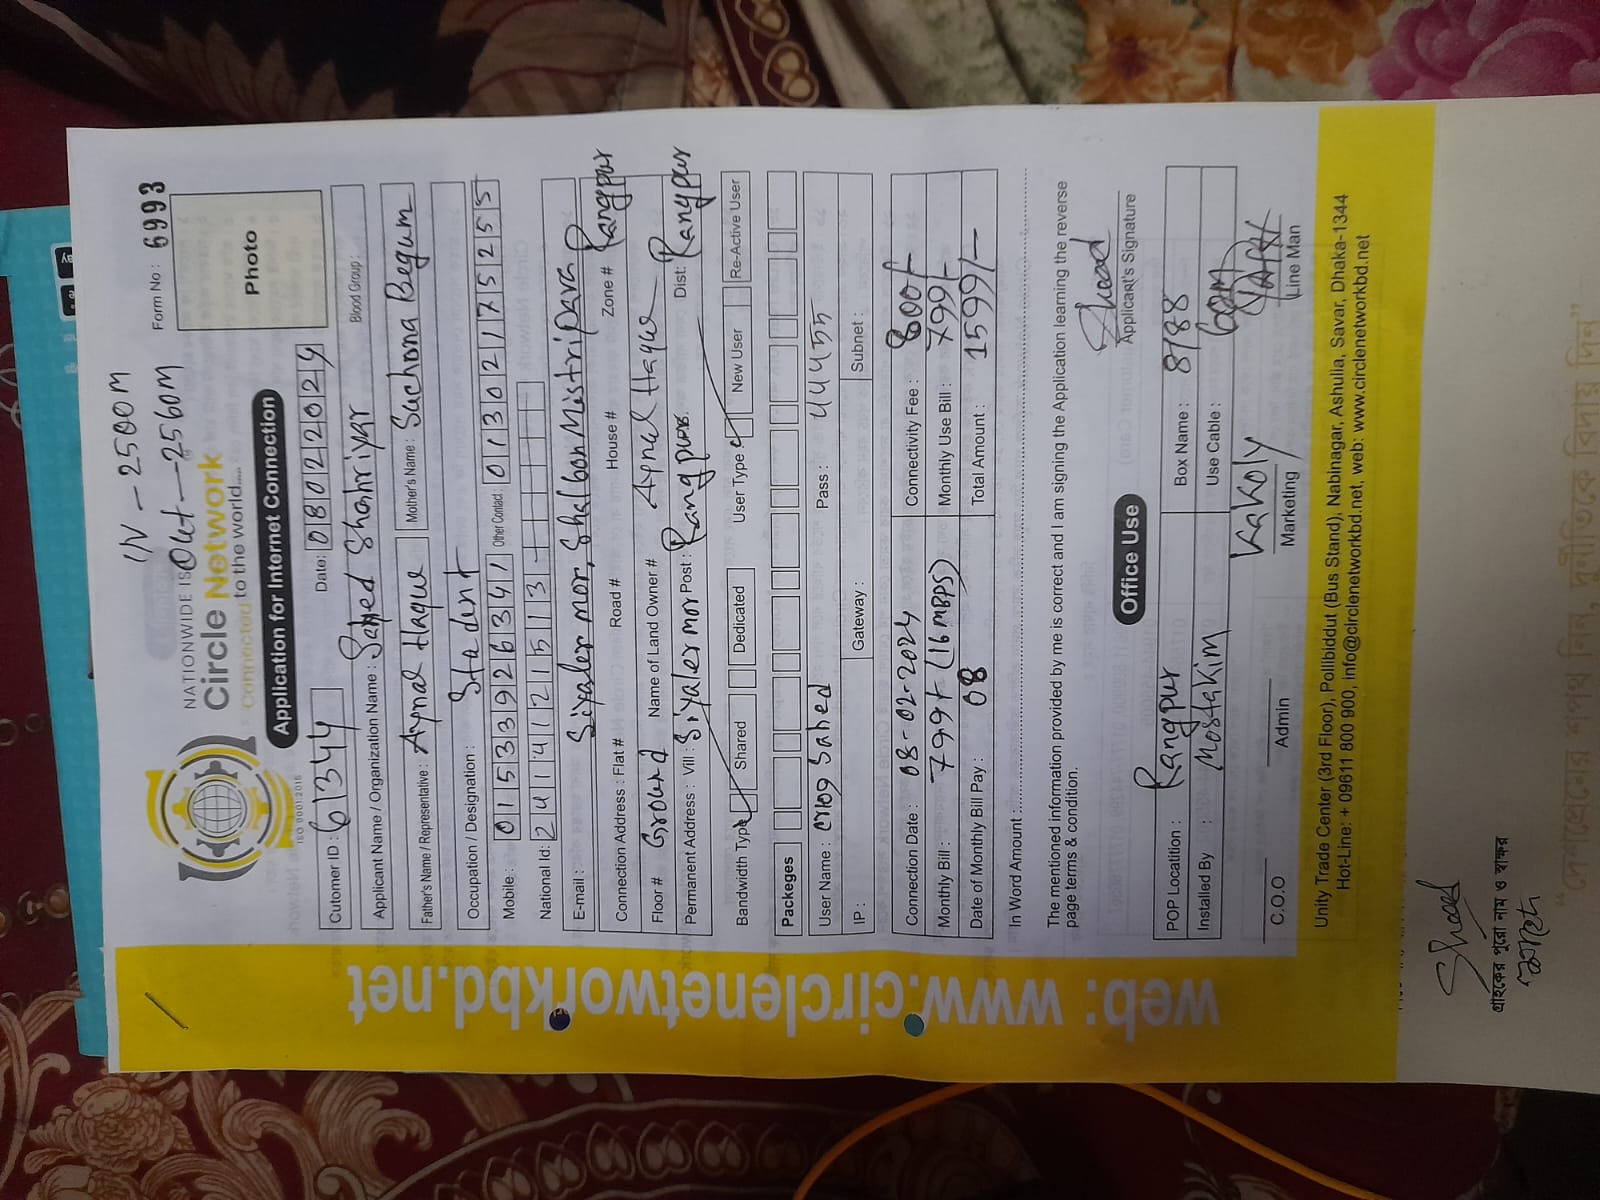 IN - 2500M
Out - 2560M
Form No : 6993
NATIONWIDE IS
Circle Network
Connected to the world.....
ISO 9001:2015
Photo
Application for Internet Connection
Cutomer ID : 61344
Date: 08022024
Applicant Name / Organization Name : Sahed Shahriyar
Blood Group :
Father's Name / Representative : Aynal Haque
Mother's Name : Suchona Begum
Occupation / Designation : Student
Mobile : 01533926341
Other Contact : 01302175255
National Id: 2414121513
E-mail : Siyaler mor, Shalbon Mistripara
Connection Address : Flat #
Road #
House #
Zone # Rangpur
Floor # Ground
Name of Land Owner # Aynal Haque
Permanent Address : Vill : Siyaler mor
Post : Rangpur
Dist: Rangpur
Bandwidth Type
Shared
Dedicated
User Type :
New User
Re-Active User
Packeges
User Name : Sahed
Pass :
IP :
Gateway :
Subnet :
Connection Date : 08-02-2024
Connectivity Fee : 800/-
Monthly Bill : 799 + (16 MBPS)
Monthly Use Bill : 799/-
Date of Monthly Bill Pay : 08
Total Amount : 1599/-
In Word Amount
The mentioned information provided by me is correct and I am signing the Application learning the reverse
page terms & condition.
Applicant's Signature
Office Use
POP Locatition : Rangpur
Box Name : 8/88
Installed By : Mostakim
Use Cable : 60m
Kakoly
C.O.O
Admin
Marketing
Line Man
Unity Trade Center (3rd Floor), Pollibiddut (Bus Stand), Nabinagar, Ashulia, Savar, Dhaka-1344
Hot-Line: + 09611 800 900, info@circlenetworkbd.net, web: www.circlenetworkbd.net
web: www.circlenetworkbd.net
গ্রাহকের পুরো নাম ও স্বাক্ষর
"দেশপ্রেমের শপথ নিন, দুর্নীতিকে বিদায় দিন"